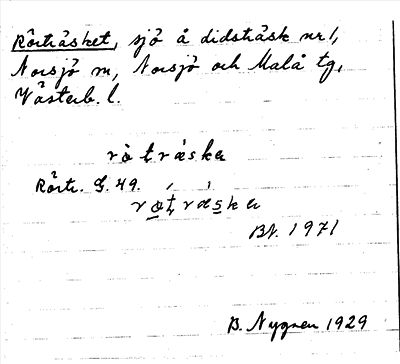 Rörträsket, sjö å didsträsk nr 1,
Norsjö sn, Norsjö och Malå tg,
Västerb. l.
rö̀ t̩ræskə
Rörtr. S. 49.
BN. 1971
B. Nygren 1929